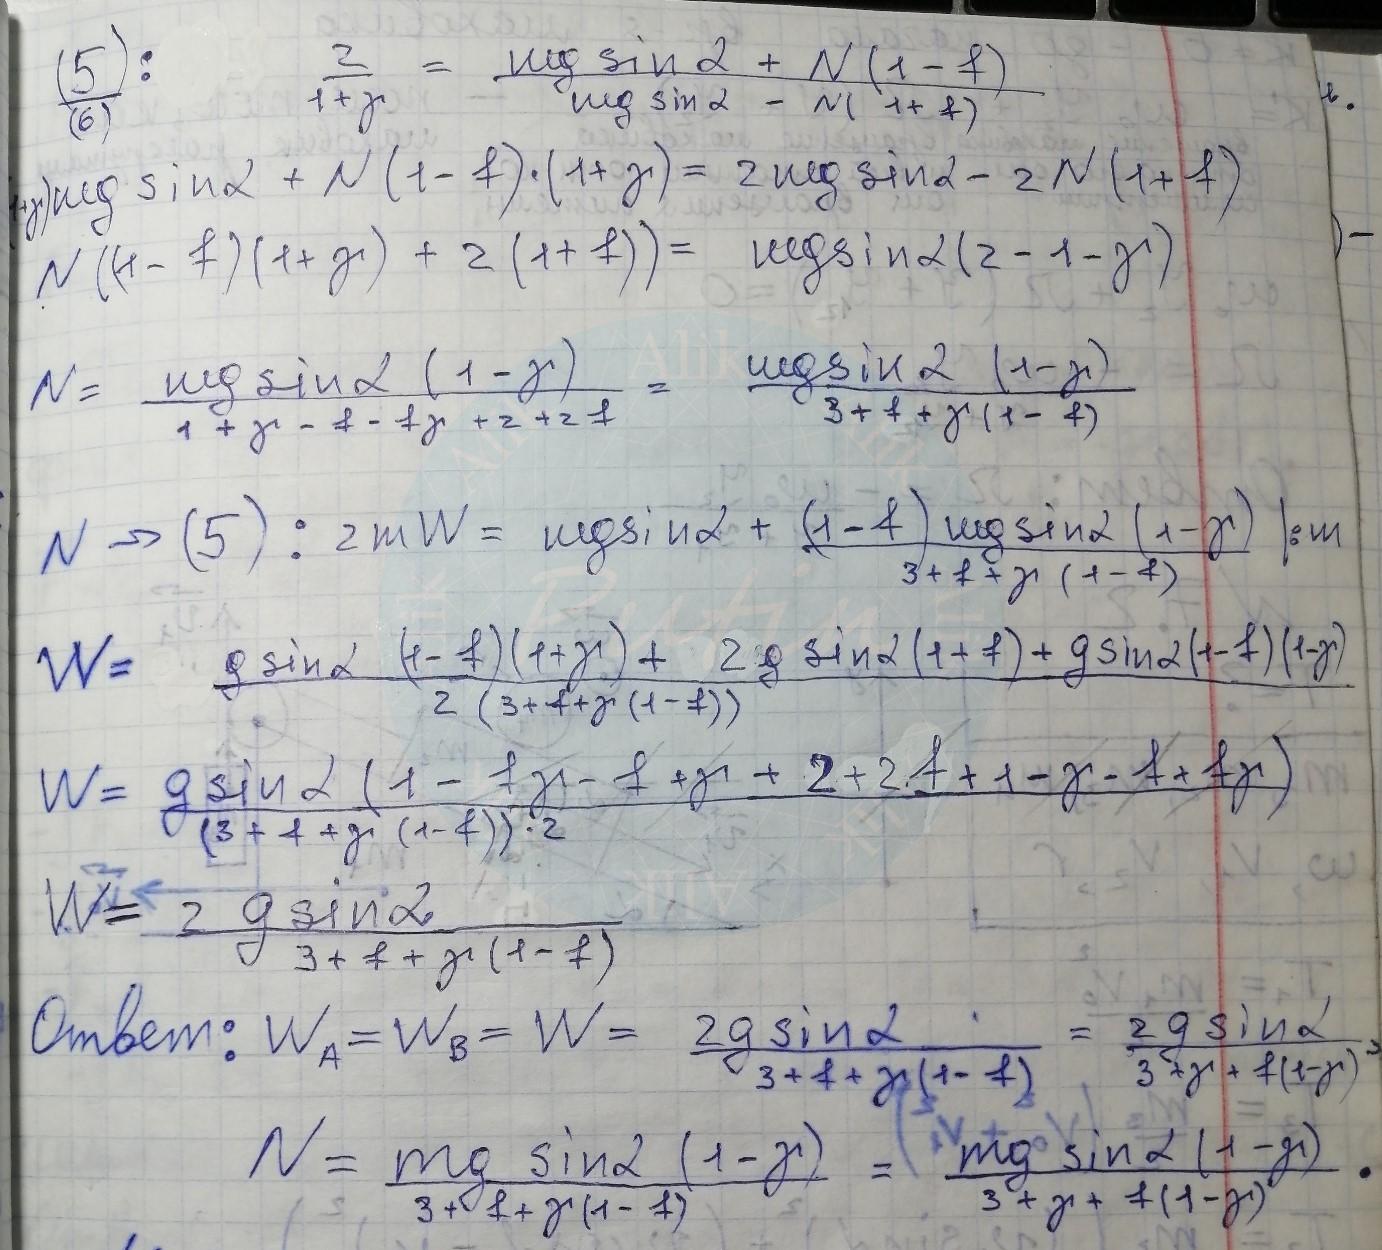 (5)/(6): 2/(1+γ) = (mg sinα + N(1-f))/(mg sinα - N(1+f))
(1+γ)mg sinα + N(1-f)·(1+γ) = 2mg sinα - 2N(1+f)
N((1-f)(1+γ) + 2(1+f)) = mg sinα(2-1-γ)
N = (mg sinα (1-γ))/(1+γ-f-fγ+2+2f) = (mg sinα (1-γ))/(3+f+γ(1-f))
N → (5): 2mW = mg sinα + ((1-f) mg sinα (1-γ))/(3+f+γ(1-f)) |:m
W = (g sinα (1-f)(1+γ) + 2g sinα(1+f) + g sinα(1-f)(1-γ))/(2(3+f+γ(1-f)))
W = (g sinα (1 - fγ - f + γ + 2 + 2f + 1 - γ - f + fγ))/((3+f+γ(1-f))·2)
W = (2 g sinα)/(3+f+γ(1-f))
Ответ: W_A = W_B = W = (2g sinα)/(3+f+γ(1-f)) = (2g sinα)/(3+γ+f(1-γ)),
N = (mg sinα (1-γ))/(3+f+γ(1-f)) = (mg sinα (1-γ))/(3+γ+f(1-γ)).
Alik
Putin